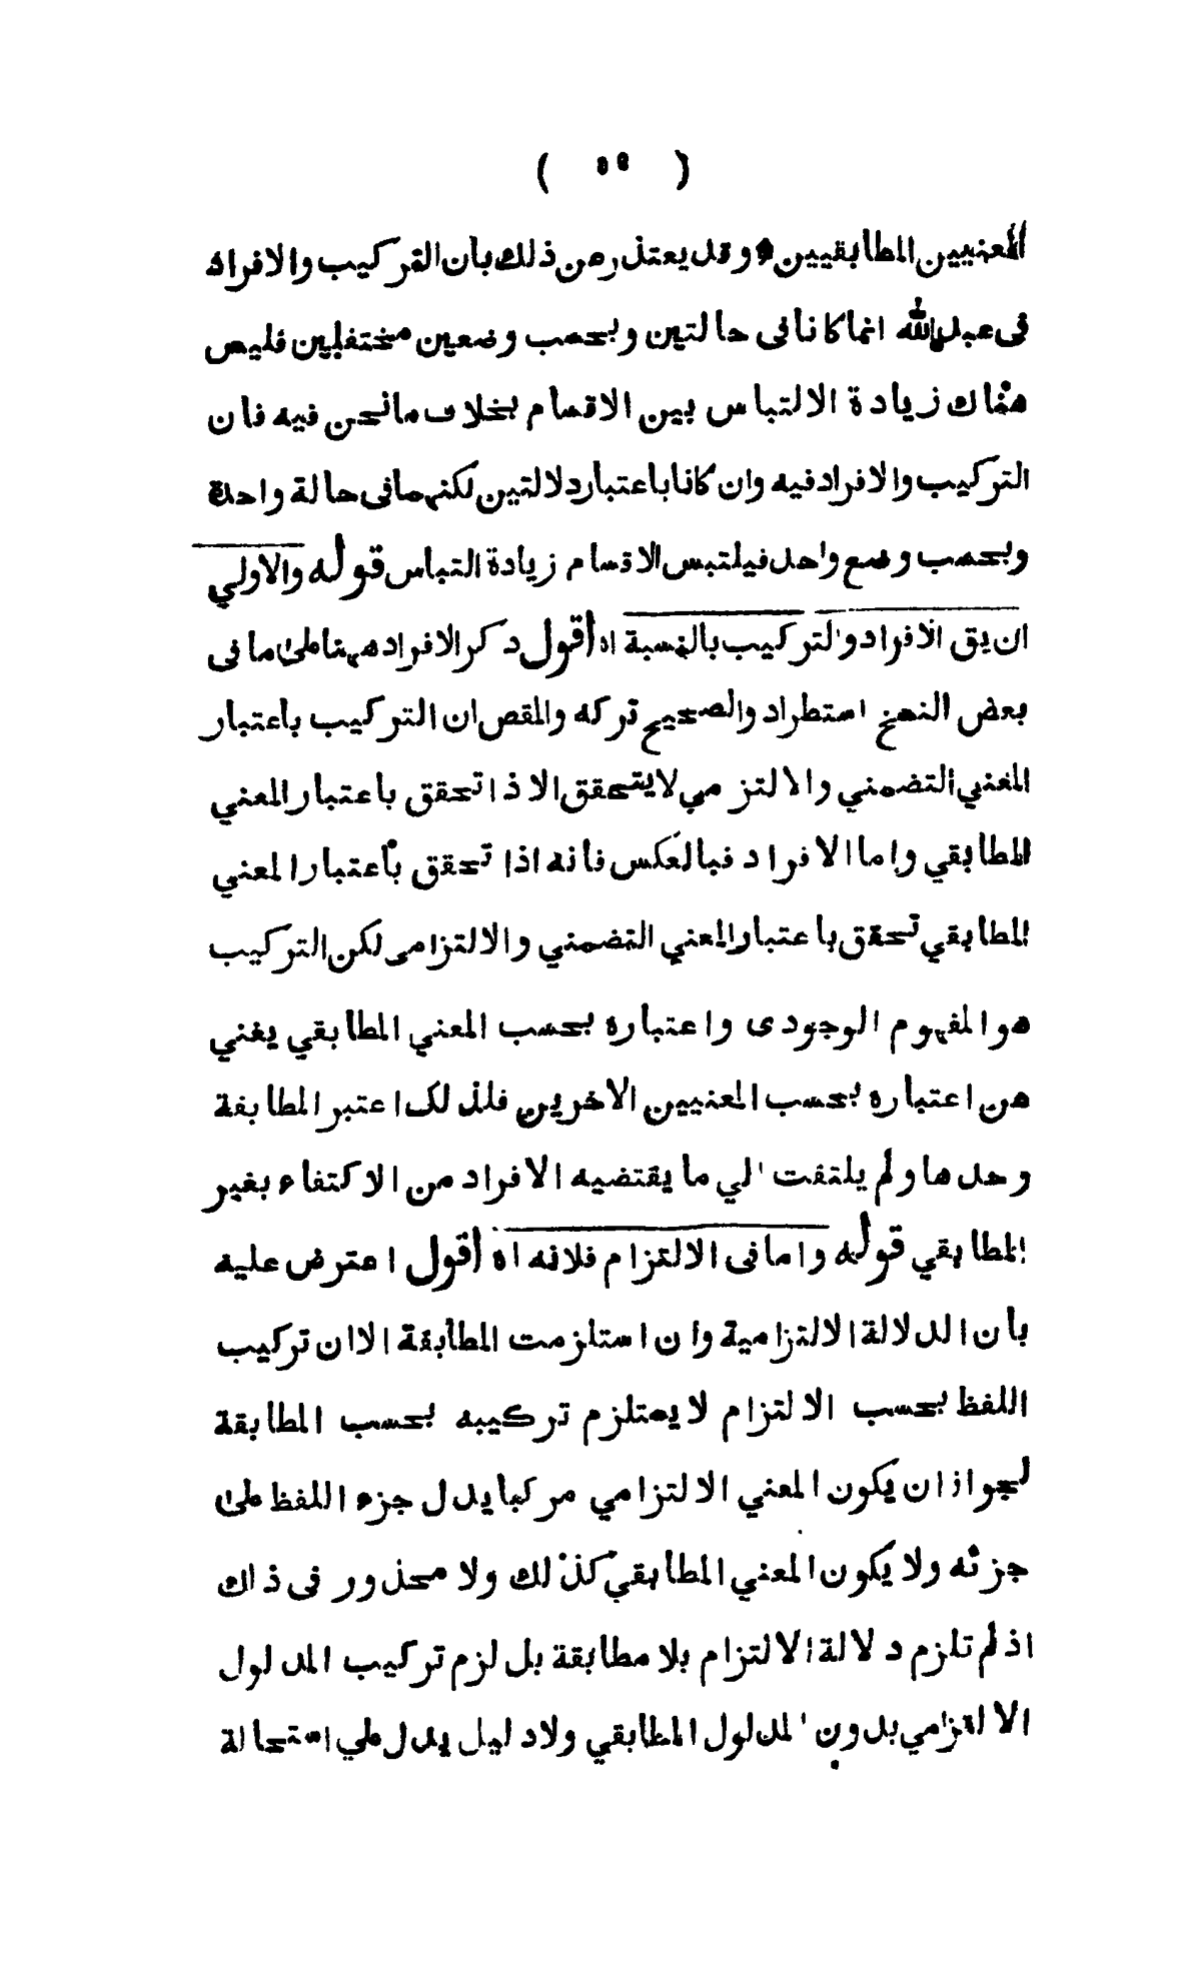 ( ٥٥ )
المعنيين المطابقيين وقد يعتذر عن ذلك بان التركيب والافراد
فى عبدالله انما كانا فى حالتين وبحسب وضعين مختلفين فليس
هناك زيادة الالتباس بين الاقسام بخلاف ما نحن فيه فان
التركيب والافراد فيه وان كانا باعتبار دلالتين لكنهما فى حالة واحدة
وبحسب وضع واحد فيلتبس الاقسام زيادة التباس قوله والاولي
ان يق الافراد والتركيب بالنسبة اه اقول ذكر الافراد ههنا علىٰ ما فى
بعض النسخ استطراد والصحيح تركه والمقص ان التركيب باعتبار
المعني التضمني والالتزمي لا يتحقق الا ذا تحقق باعتبار المعني
المطابقي واما الافراد فبالعكس فانه اذا تحقق باعتبار المعني
المطابقي تحقق باعتبار المعني التضمني والالتزامى لكن التركيب
هو المفهوم الوجودى واعتباره بحسب المعني المطابقي يغني
عن اعتباره بحسب المعنيين الاخرين فلذلك اعتبر المطابقة
وحدها ولم يلتفت الي ما يقتضيه الافراد من الاكتفاء بغير
المطابقي قوله واما فى الالتزام فلانه اه اقول اعترض عليه
بان الدلالة الالتزامية وان استلزمت المطابقة الا ان تركيب
اللفظ بحسب الالتزام لا يستلزم تركيبه بحسب المطابقة
لجواز ان يكون المعني الالتزامي مركبا يدل جزء اللفظ علىٰ
جزئه ولا يكون المعني المطابقي كذلك ولا محذور فى ذاك
اذ لم تلزم دلالة الالتزام بلا مطابقة بل لزم تركيب المدلول
الالتزامي بدون المدلول المطابقي ولا دليل يدل علي استحالة